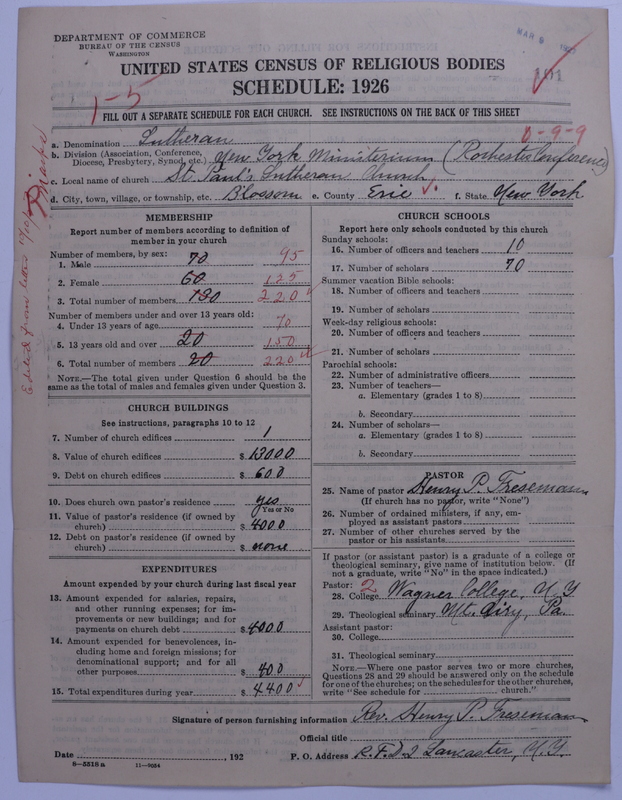 DEPARTMENT OF COMMERCE
BUREAU OF THE CENSUS
WASHINGTON
MAR 9
101
UNITED STATES CENSUS OF RELIGIOUS BODIES
SCHEDULE: 1926
1-5
FILL OUT A SEPARATE SCHEDULE FOR EACH CHURCH. SEE INSTRUCTIONS ON THE BACK OF THIS SHEET
0-9-9
a. Denomination Lutheran
b. Division (Association, Conference, Diocese, Presbytery, Synod, etc.) New York Ministerium (Rochester Conference)
c. Local name of church St. Paul's Lutheran Church
d. City, town, village, or township, etc. Blossom e. County Erie f. State New York
MEMBERSHIP
Report number of members according to definition of
member in your church
Number of members, by sex:
1. Male 70 95
2. Female 60 125
3. Total number of members 130 220
Number of members under and over 13 years old:
4. Under 13 years of age 70
5. 13 years old and over 20 150
6. Total number of members 20 220
NOTE.—The total given under Question 6 should be the
same as the total of males and females given under Question 3.
CHURCH BUILDINGS
See instructions, paragraphs 10 to 12
7. Number of church edifices 1
8. Value of church edifices $ 13000
9. Debt on church edifices $ 600
10. Does church own pastor's residence yes
Yes or No
11. Value of pastor's residence (if owned by
church) $ 4000
12. Debt on pastor's residence (if owned by
church) $ none
EXPENDITURES
Amount expended by your church during last fiscal year
13. Amount expended for salaries, repairs,
and other running expenses; for im-
provements or new buildings; and for
payments on church debt $ 4000
14. Amount expended for benevolences, in-
cluding home and foreign missions; for
denominational support; and for all
other purposes $ 400
15. Total expenditures during year $ 4400
CHURCH SCHOOLS
Report here only schools conducted by this church
Sunday schools:
16. Number of officers and teachers 10
17. Number of scholars 70
Summer vacation Bible schools:
18. Number of officers and teachers
19. Number of scholars
Week-day religious schools:
20. Number of officers and teachers
21. Number of scholars
Parochial schools:
22. Number of administrative officers
23. Number of teachers—
a. Elementary (grades 1 to 8)
b. Secondary
24. Number of scholars—
a. Elementary (grades 1 to 8)
b. Secondary
PASTOR
25. Name of pastor Henry P. Freseman
(If church has no pastor, write "None")
26. Number of ordained ministers, if any, em-
ployed as assistant pastors
27. Number of other churches served by the
pastor or his assistants
If pastor (or assistant pastor) is a graduate of a college or
theological seminary, give name of institution below. (If
not a graduate, write "No" in the space indicated.)
Pastor: 2
28. College Wagner College, N.Y
29. Theological seminary Mt. Airy, Pa.
Assistant pastor:
30. College
31. Theological seminary
NOTE.—Where one pastor serves two or more churches,
Questions 28 and 29 should be answered only on the schedule
for one of the churches; on the schedules for the other churches,
write "See schedule for church."
Signature of person furnishing information Rev. Henry P. Freseman
Official title
Date , 192 P. O. Address R.F.D. 2 Lancaster, N.Y.
8—5518a 11—9054